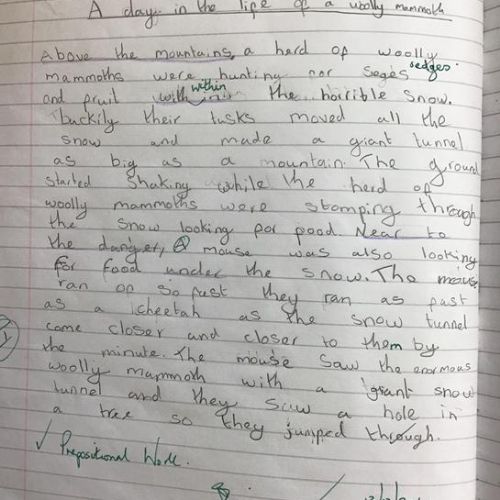 A day in the life of a woolly mammoth
Above the mountains, a herd of woolly
mammoths were hunting for seges sedges.
and fruit within the horrible snow.
luckily their tusks moved all the
snow and made a giant tunnel
as big as a mountain. The ground
started shaking while the herd of
woolly mammoths were stomping through
the snow looking for food. Near to
the danger, a mouse was also looking
for food under the snow. The mouse
ran of so fast they ran as fast
as a cheetah as the snow tunnel
came closer and closer to them by
the minute. The mouse saw the enormous
woolly mammoth with a giant snow
tunnel and they saw a hole in
a tree so they jumped through.
✓ Prepositional Work.